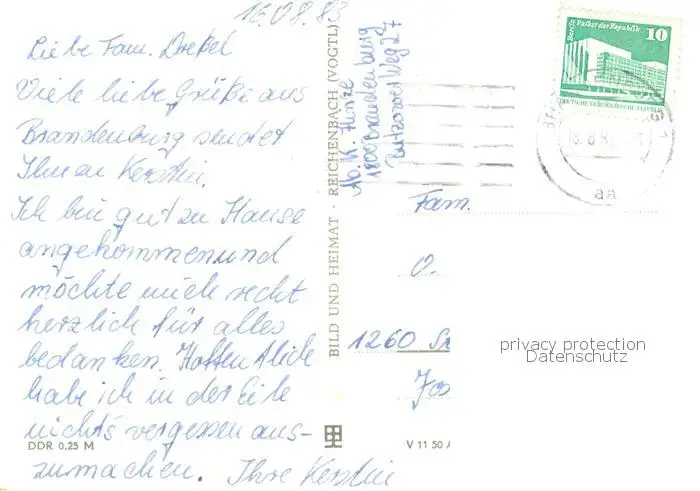 16.08.83
Liebe Fam. Drekel
Viele liebe Grüße aus
Brandenburg sendet
Ihnen Kerstin.
Ich bin gut zu Hause
angekommen und
möchte mich recht
herzlich für alles
bedanken. Hoffentlich
habe ich in der Eile
nichts vergessen aus-
zumachen. Ihre Kerstin
DDR 0,25 M
BILD UND HEIMAT · REICHENBACH (VOGTL)
Ab. K. Hinze
1800 Brandenburg
Butzower Weg 27
Berlin, Palast der Republik
10
DEUTSCHE DEMOKRATISCHE REPUBLIK
aa
Fam.
O.
1260
privacy protection
Datenschutz
V 11 50